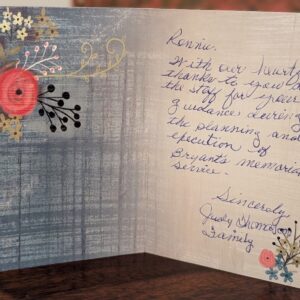 Ronnie,
With our heart
thanks to you a
the staff for your
guidance during
the planning and
execution of
Bryant's memorial
service.
Sincerely,
Judy Thomas
Family